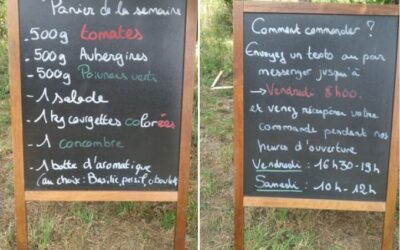 Panier de la semaine
- 500g tomates
- 500g Aubergines
- 500g Poivrons verts
- 1 salade
- 1 kg courgettes colorées
- 1 concombre
- 1 botte d'aromatique
(au choix : Basilic, persil, ciboulette
Comment commander ?
Envoyez un texto ou par
messenger jusqu'à
→ Vendredi 8h00.
et venez récupérer votre
commande pendant nos
heures d'ouverture
Vendredi : 16h30-19h
Samedi : 10h-12h